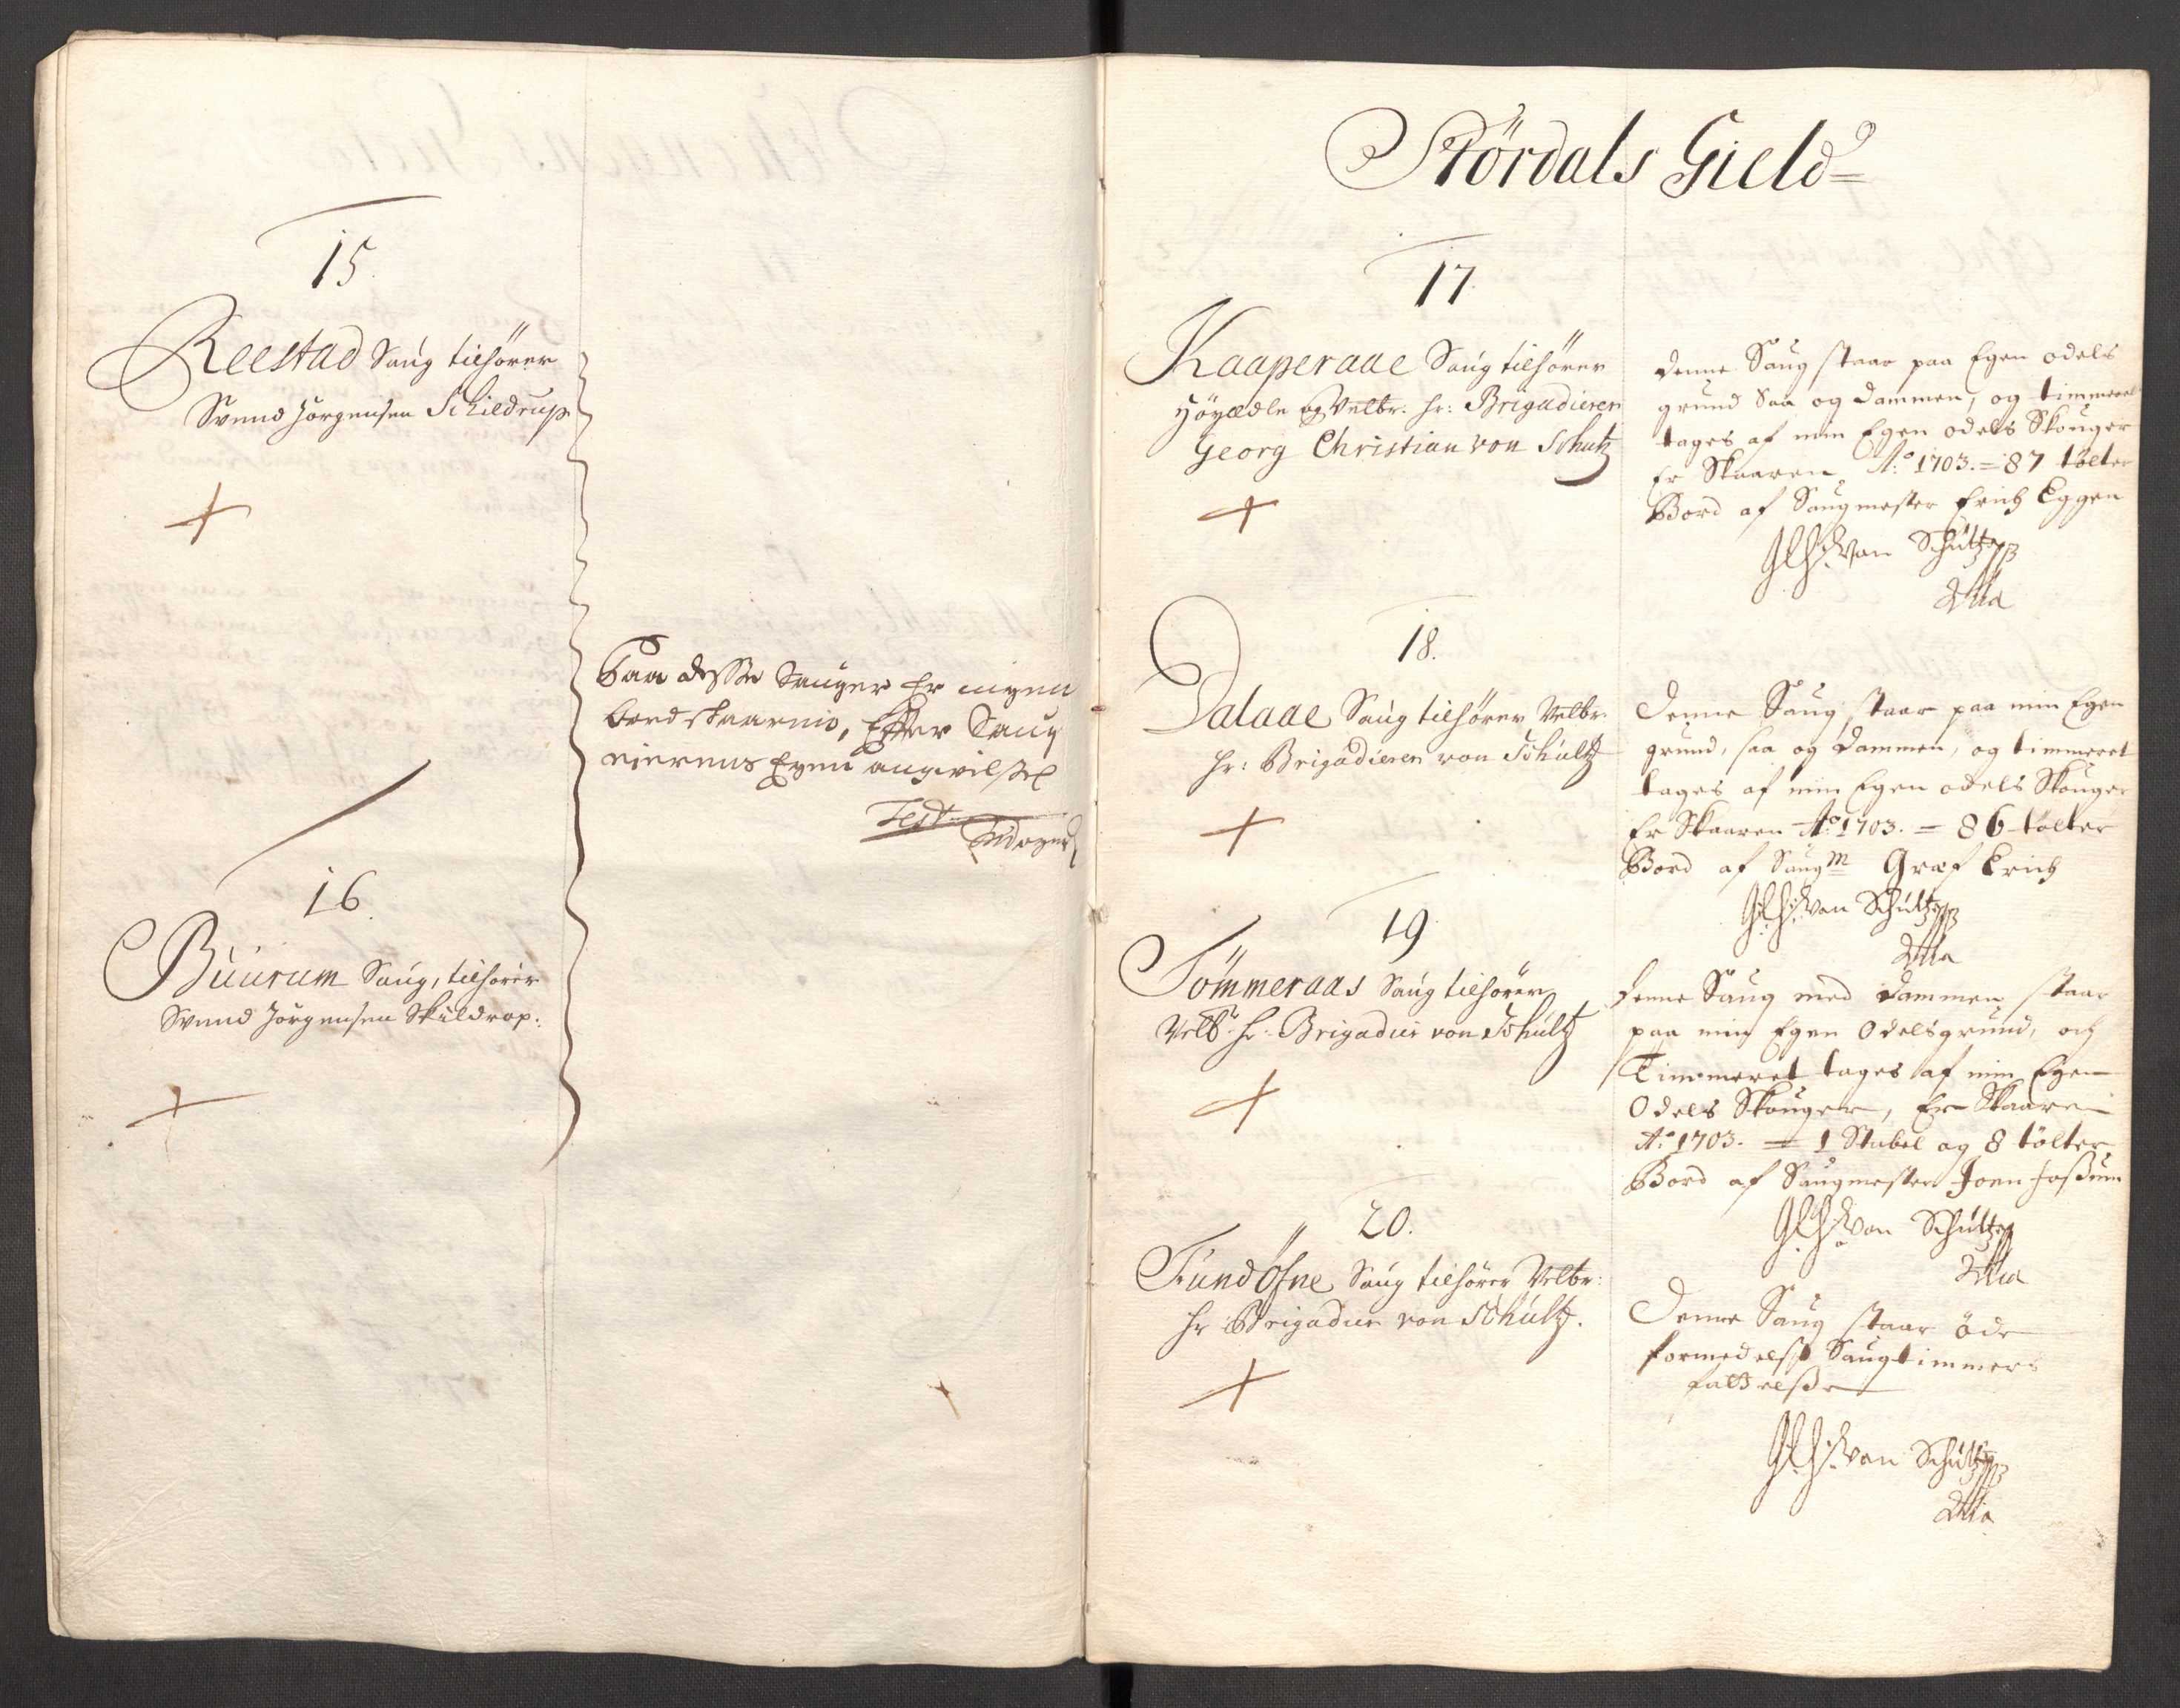 15.
Reestad Saug tilhörer
Svend Jörgensen Schildrup
16.
Buurum Saug, tilhörer
Svend Jörgensen Skildrop.
Paa disse Sauger Er ingen
bord skaarne, Efter Saug
eierens Egen angivelse
Test
Stördals Gield
17
Kaaperaae Saug tilhörer
Höyædle og Velbr. Hr: Brigadieren
Georg Christian von Schutz
denne Saug staar paa Egen odels
grund Saa og dammen, og timmeret
tages af min Egen odels Skouger
Er Skaaren Aº 1703. = 87 tölter
Bord af Saugmester Erich Eggen
GCh: von Schültz
18.
Dalaae Saug tilhörer Velbr.
Hr: Brigadieren von Schultz
Denne Saug staar paa min Egen
grund, saa og dammen, og timmeret
tages af min Egen odels Skouger
Er Skaaren Aº 1703. = 86 tölter
Bord af Saugm Graf Erich
GCh: von Schültz
19
Tömmeraas Saug tilhörer
Velbr. Hr: Brigadier von Schultz
Denne Saug med Dammen staar
paa min Egen Odelsgrund, och
Timmeret tages af min Egen
Odels Skouger, Er Skaaren
Aº 1703. = 1 Stabel og 8 tölter
Bord af Saugmester Joen Fossum
GCh: von Schültz
20.
Fundöfne Saug tilhörer Velbr:
Hr Brigadier von Schultz.
Denne Saug staar öde
formedelst Saugtimmers
fattelse
GCh: von Schültz